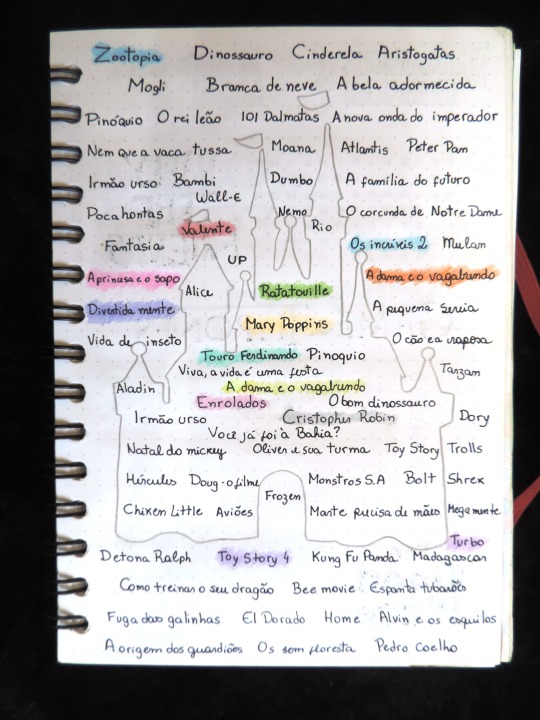 Zootopia Dinossauro Cinderela Aristogatas
Mogli Branca de neve A bela adormecida
Pinóquio O rei leão 101 Dalmatas A nova onda do imperador
Nem que a vaca tussa Moana Atlantis Peter Pan
Irmão urso Bambi Dumbo A família do futuro
Wall-E
Pocahontas Nemo O corcunda de Notre Dame
Valente Rio
Fantasia Os incríveis 2 Mulam
UP
A prinusa e o sapo Alice Ratatouille A dama e o vagabundo
Divertida mente Mary Poppins A pequena sereia
Vida de inseto O cão e a raposa
Touro Ferdinando Pinoquio
Viva, a vida é uma festa Tarzan
Aladin A dama e o vagabundo
Enrolados O bom dinossauro
Irmão urso Cristopher Robin Dory
Você já foi à Bahia?
Natal do mickey Oliver e sua turma Toy Story Trolls
Hércules Doug-o filme Monstros S.A Bolt Shrek
Frozen
Chixen Little Aviões Marte precisa de mães Megamente
Turbo
Detona Ralph Toy Story 4 Kung Fu Panda Madagascar
Como treinar o seu dragão Bee movie Espanta tubarões
Fuga das galinhas El Dorado Home Alvin e os esquilos
A origem dos guardiões Os sem floresta Pedro Coelho